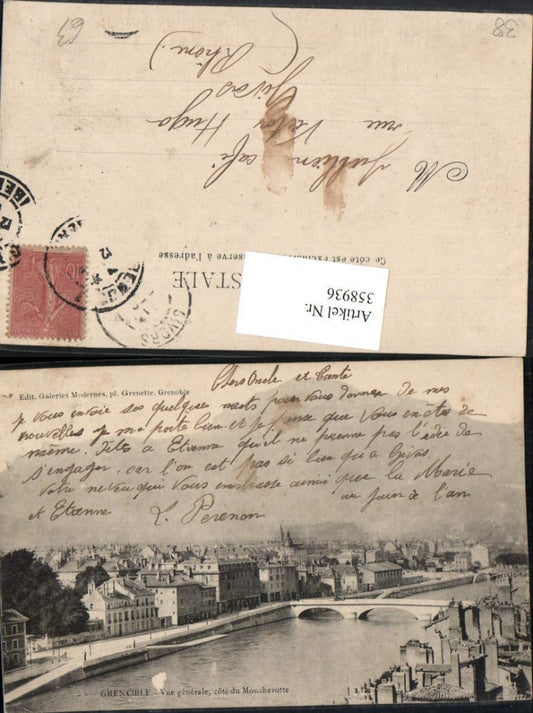 38
63
M Jullien café
rue Victor Hugo
Givors
(Rhône)
Ce côté est exclusivement réservé à l'adresse
STALE
Artikel Nr.
358936
GIVORS
Edit. Galeries Modernes, pl. Grenette, Grenoble
Cher Oncle et Tante
Je vous envoie ses quelques mots pour vous donner de mes
nouvelles je me porte bien et je pense que vous en êtes de
même. Dites à Etienne qu'il ne prenne pas l'idée de
s'engager. car l'on est pas si bien qu'a Givors
Votre neveu qui vous embrasse ainsi que la Marie
et Etienne
un jour de l'an
L. Perenon
GRENOBLE - Vue générale, côté du Moucherotte